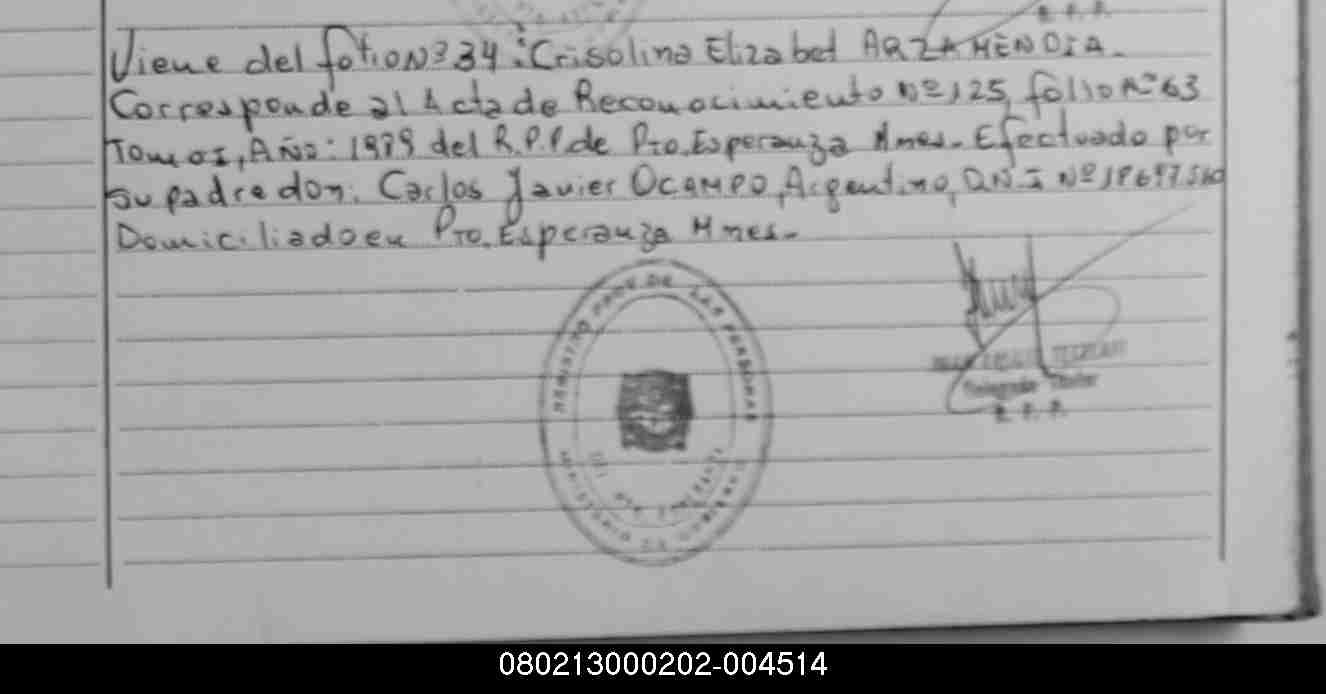 R. P. P.
Viene del folio Nº 34 : Crisolina Elizabet ARZAMENDIA.
Corresponde al Acta de Reconocimiento Nº 125, folio Nº 63
Tomo I, Año: 1979 del R.P.P. de Pto. Esperanza Mnes. Efectuado por
su padre don: Carlos Javier OCAMPO, Argentino, D.N.I Nº
Domiciliado en Pto. Esperanza Mnes.-
REGISTRO PROV. DE LAS PERSONAS
MINISTERIO DE GOBIERNO
Delegado Titular
R. P. P.
080213000202-004514